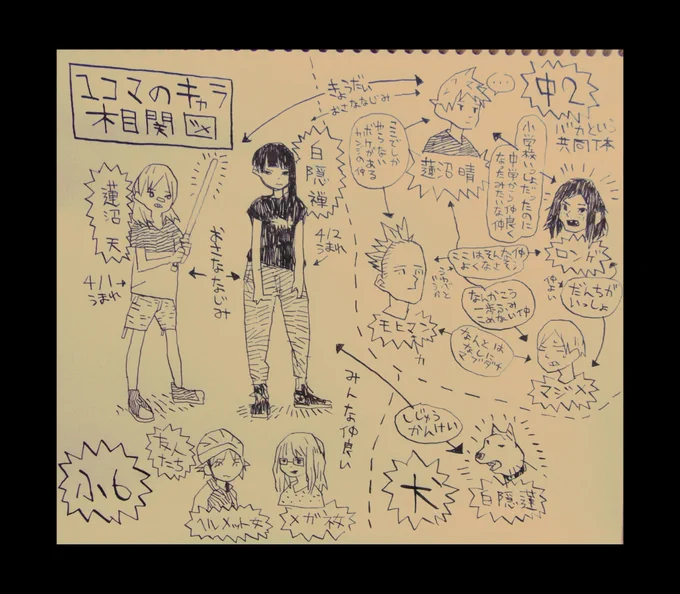 ユコマのキャラ
相関図
きょうだい
おさななじみ
中2
バカという
共同体
蓮沼 晴
ここでしか
やらない
ボケがある
カンジの仲
小学校いっしょだったのに
中学から仲良く
なったみたいな仲
白隠 禅
4/2
うまれ
蓮沼 天
4/1
うまれ
おさななじみ
ロンゲ
ここはそんな仲
よくなさそう
なんかこう
一歩ふみ
こめない仲
仲よい
だんちが
いっしょ
モヒマン
なんとは
なしに
マブダチ
マジメ
みんな仲良い
しじゅう
かんけい
犬
白隠 蓮
小6
友人
たち
ヘルメット女
メガ枚